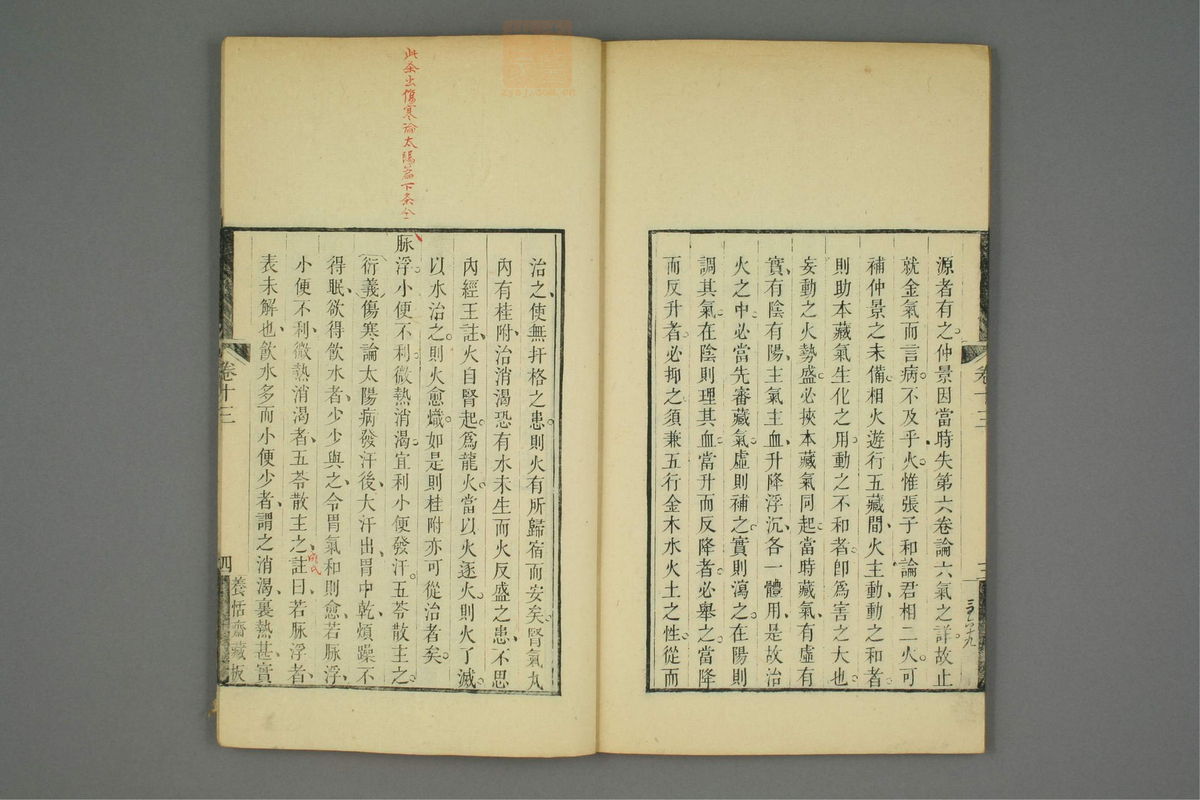 源者有之仲景因當時失第六卷論六氣之詳故止
就金氣而言病不及乎火惟張子和論君相二火可
補仲景之未備相火遊行五藏間火主動動之和者
則助本藏氣生化之用動之不和者卽爲害之大也
妄動之火勢盛必挾本藏氣同起當時藏氣有虛有
實有陰有陽主氣主血升降浮沉各一體用是故治
火之中必當先審藏氣虛則補之實則瀉之在陽則
調其氣在陰則理其血當升而反降者必舉之當降
而反升者必抑之須兼五行金木水火土之性從而
卷十三
三
治之使無扞格之患則火有所歸宿而安矣腎氣丸
內有桂附治消渴恐有水未生而火反盛之患不思
內經王註火自腎起爲龍火當以火逐火則火了滅
以水治之則火愈熾如是則桂附亦可從治者矣
此条出傷寒論太陽篇下条仝
脉浮小便不利微熱消渴宜利小便發汗五苓散主之
衍義傷寒論太陽病發汗後大汗出胃中乾煩躁不
得眠欲得飮水者少少與之令胃氣和則愈若脉浮
小便不利微熱消渴者五苓散主之註曰若脉浮者
表未解也飮水多而小便少者謂之消渴裏熱甚實
卷十三
四
養恬齋藏板